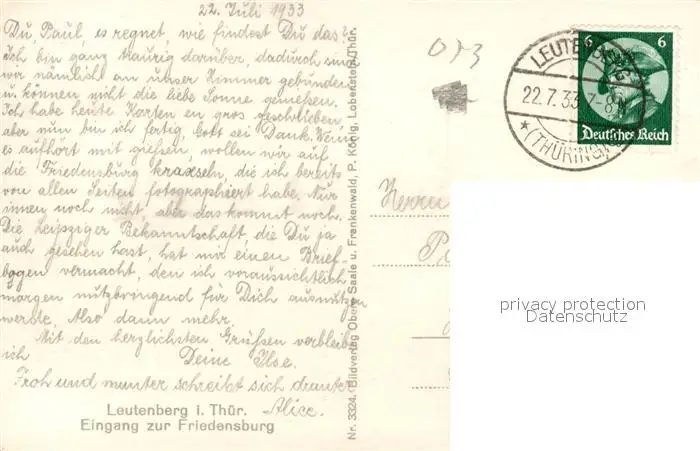 22. Juli 1933
Du, Paul, es regnet, wie findest Du das?
Ich bin ganz traurig darüber, dadurch sind
wir nämlich an unser Zimmer gebunden
u. können nicht die liebe Sonne genießen.
Ich habe heute Karten en gros geschrieben,
aber nun bin ich fertig, Gott sei Dank. Wenn
es aufhört mit gießen, wollen wir auf
die Friedensburg kraxseln, die ich bereits
von allen Seiten fotographiert habe. Nur
innen noch nicht, aber das kommt noch.
Die Leipziger Bekanntschaft, die Du ja
auch gesehen hast, hat mir einen Brief-
bogen vermacht, den ich voraussichtlich
morgen nutzbringend für Dich ausnützen
werde. Also dann mehr.
Mit den herzlichsten Grüßen verbleibe
ich Deine Ilse.
Froh und munter schreibt sich drunter
Alice.
Leutenberg i. Thür.
Eingang zur Friedensburg
Nr. 3324. Bildverlag Obere Saale u. Frankenwald, P. König, Lobenstein/Thür.
073
LEUTENBERG
22.7.33.7-8
* (THÜRING)
6 6
Deutsches Reich
Herrn
privacy protection
Datenschutz